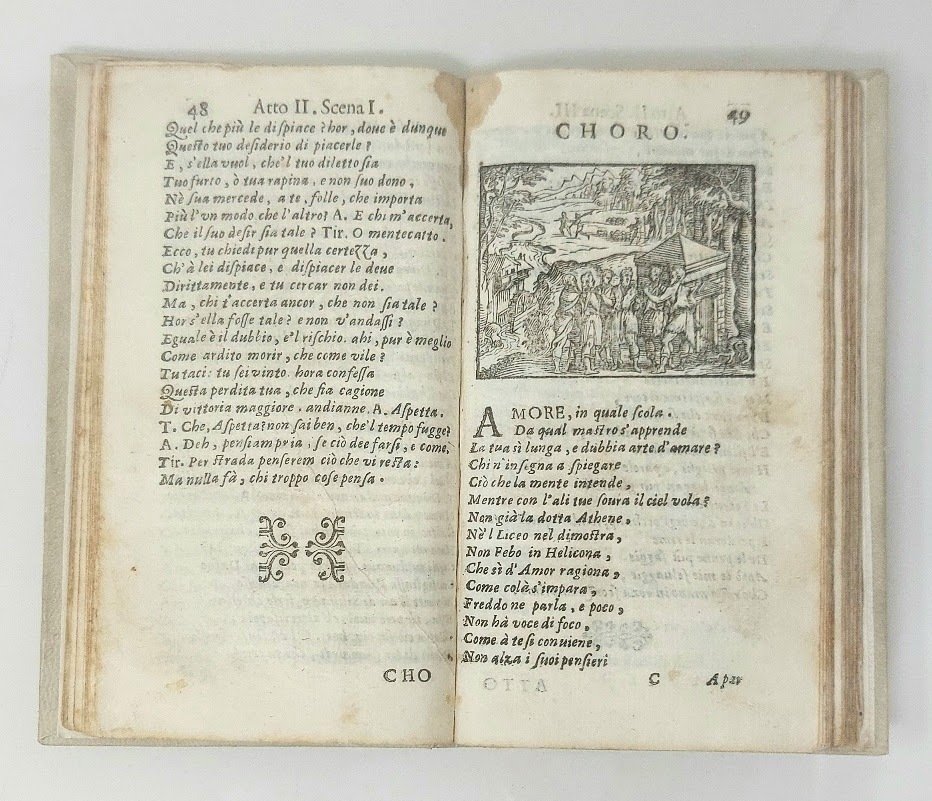 48 Atto II. Scena I.
Quel che più le dispiace? hor, doue è dunque
Questo tuo desiderio di piacerle?
E, s'ella vuol, che'l tuo diletto sia
Tuo furto, ò tua rapina, e non suo dono,
Nè sua mercede, a te, folle, che importa
Più l'vn modo che l'altro? A. E chi m'accerta,
Che il suo desir sia tale? Tir. O mentecatto.
Ecco, tu chiedi pur quella certezza,
Ch'à lei dispiace, e dispiacer le deue
Dirittamente, e tu cercar non dei.
Ma, chi t'accerta ancor, che non sia tale?
Hor s'ella fosse tale? e non v'andassi?
Eguale è il dubbio, e'l rischio. ahi, pur è meglio
Come ardito morir, che come vile?
Tu taci: tu sei vinto. hora confessa
Questa perdita tua, che sia cagione
Di vittoria maggiore. andianne. A. Aspetta.
T. Che, Aspetta? non sai ben, che'l tempo fugge?
A. Deh, pensiam pria, se ciò dee farsi, e come.
Tir. Per strada penserem ciò che vi resta:
Ma nulla fà, chi troppo cose pensa.
CHO
49
CHORO.
AMORE, in quale scola.
Da qual mastro s'apprende
La tua sì lunga, e dubbia arte d'amare?
Chi n'insegna a spiegare
Ciò che la mente intende,
Mentre con l'ali tue soura il ciel vola?
Non già la dotta Athene,
Nè'l Liceo nel dimostra,
Non Febo in Helicona,
Che sì d'Amor ragiona,
Come colà s'impara,
Freddo ne parla, e poco,
Non hà voce di foco,
Come à te si conuiene,
Non alza i suoi pensieri
C A par